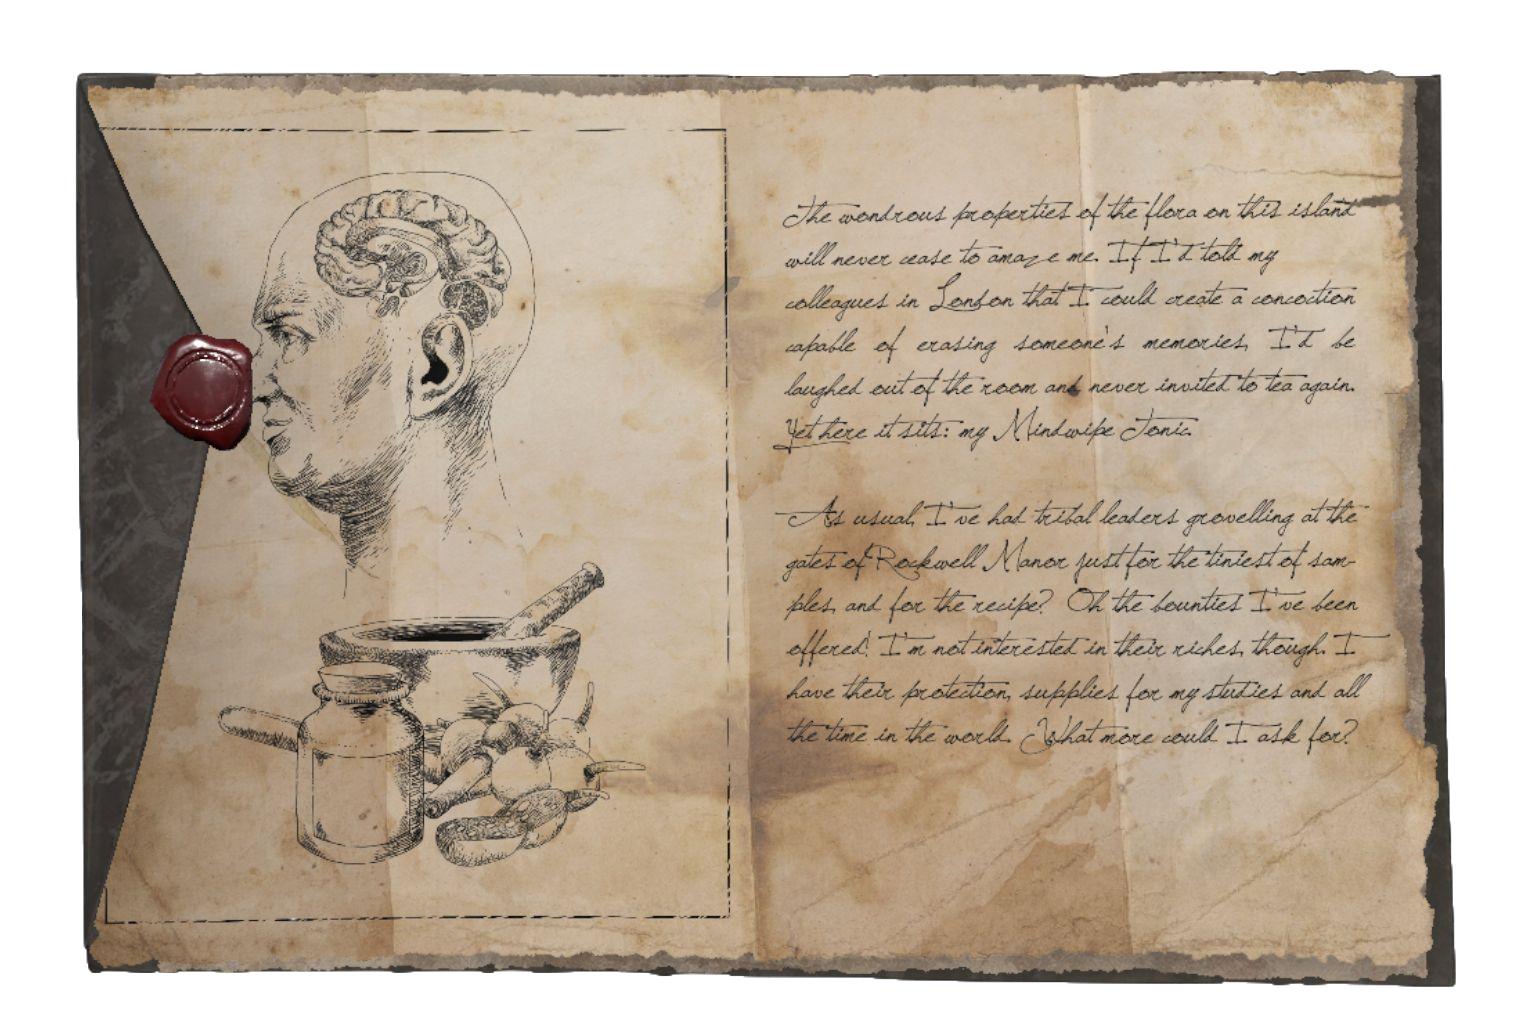 The wondrous properties of the flora on this island
will never cease to amaze me. If I'd told my
colleagues in London that I could create a concoction
capable of erasing someone's memories, I'd be
laughed out of the room and never invited to tea again.
Yet here it sits: my Mindwipe Tonic.
As usual, I've had tribal leaders grovelling at the
gates of Rockwell Manor just for the tiniest of sam-
ples, and for the recipe? Oh the bounties I've been
offered! I'm not interested in their riches, though. I
have their protection, supplies for my studies and all
the time in the world. What more could I ask for?